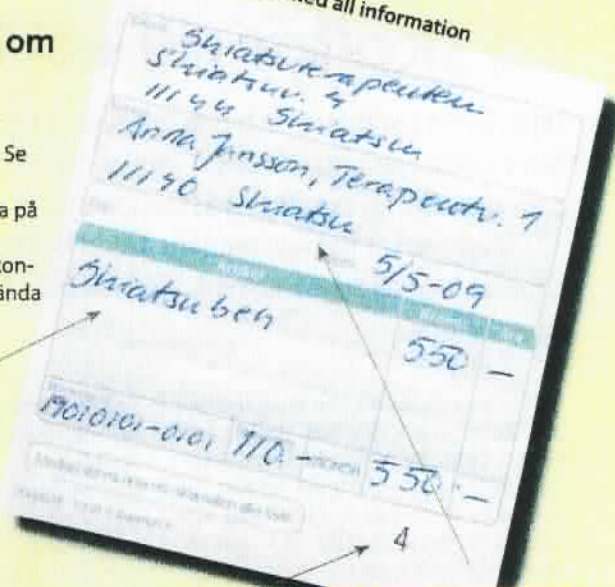 all information
om
Se
a på
kon-
ända
Shiatsuterapeuten
Shiatsuv. 4
111 44 Shiatsu
Anna Jansson, Terapeutv. 1
111 40 Shiatsu
5/5-09
Shiatsu beh
550 —
19010101-0101 110.- 550"-
4